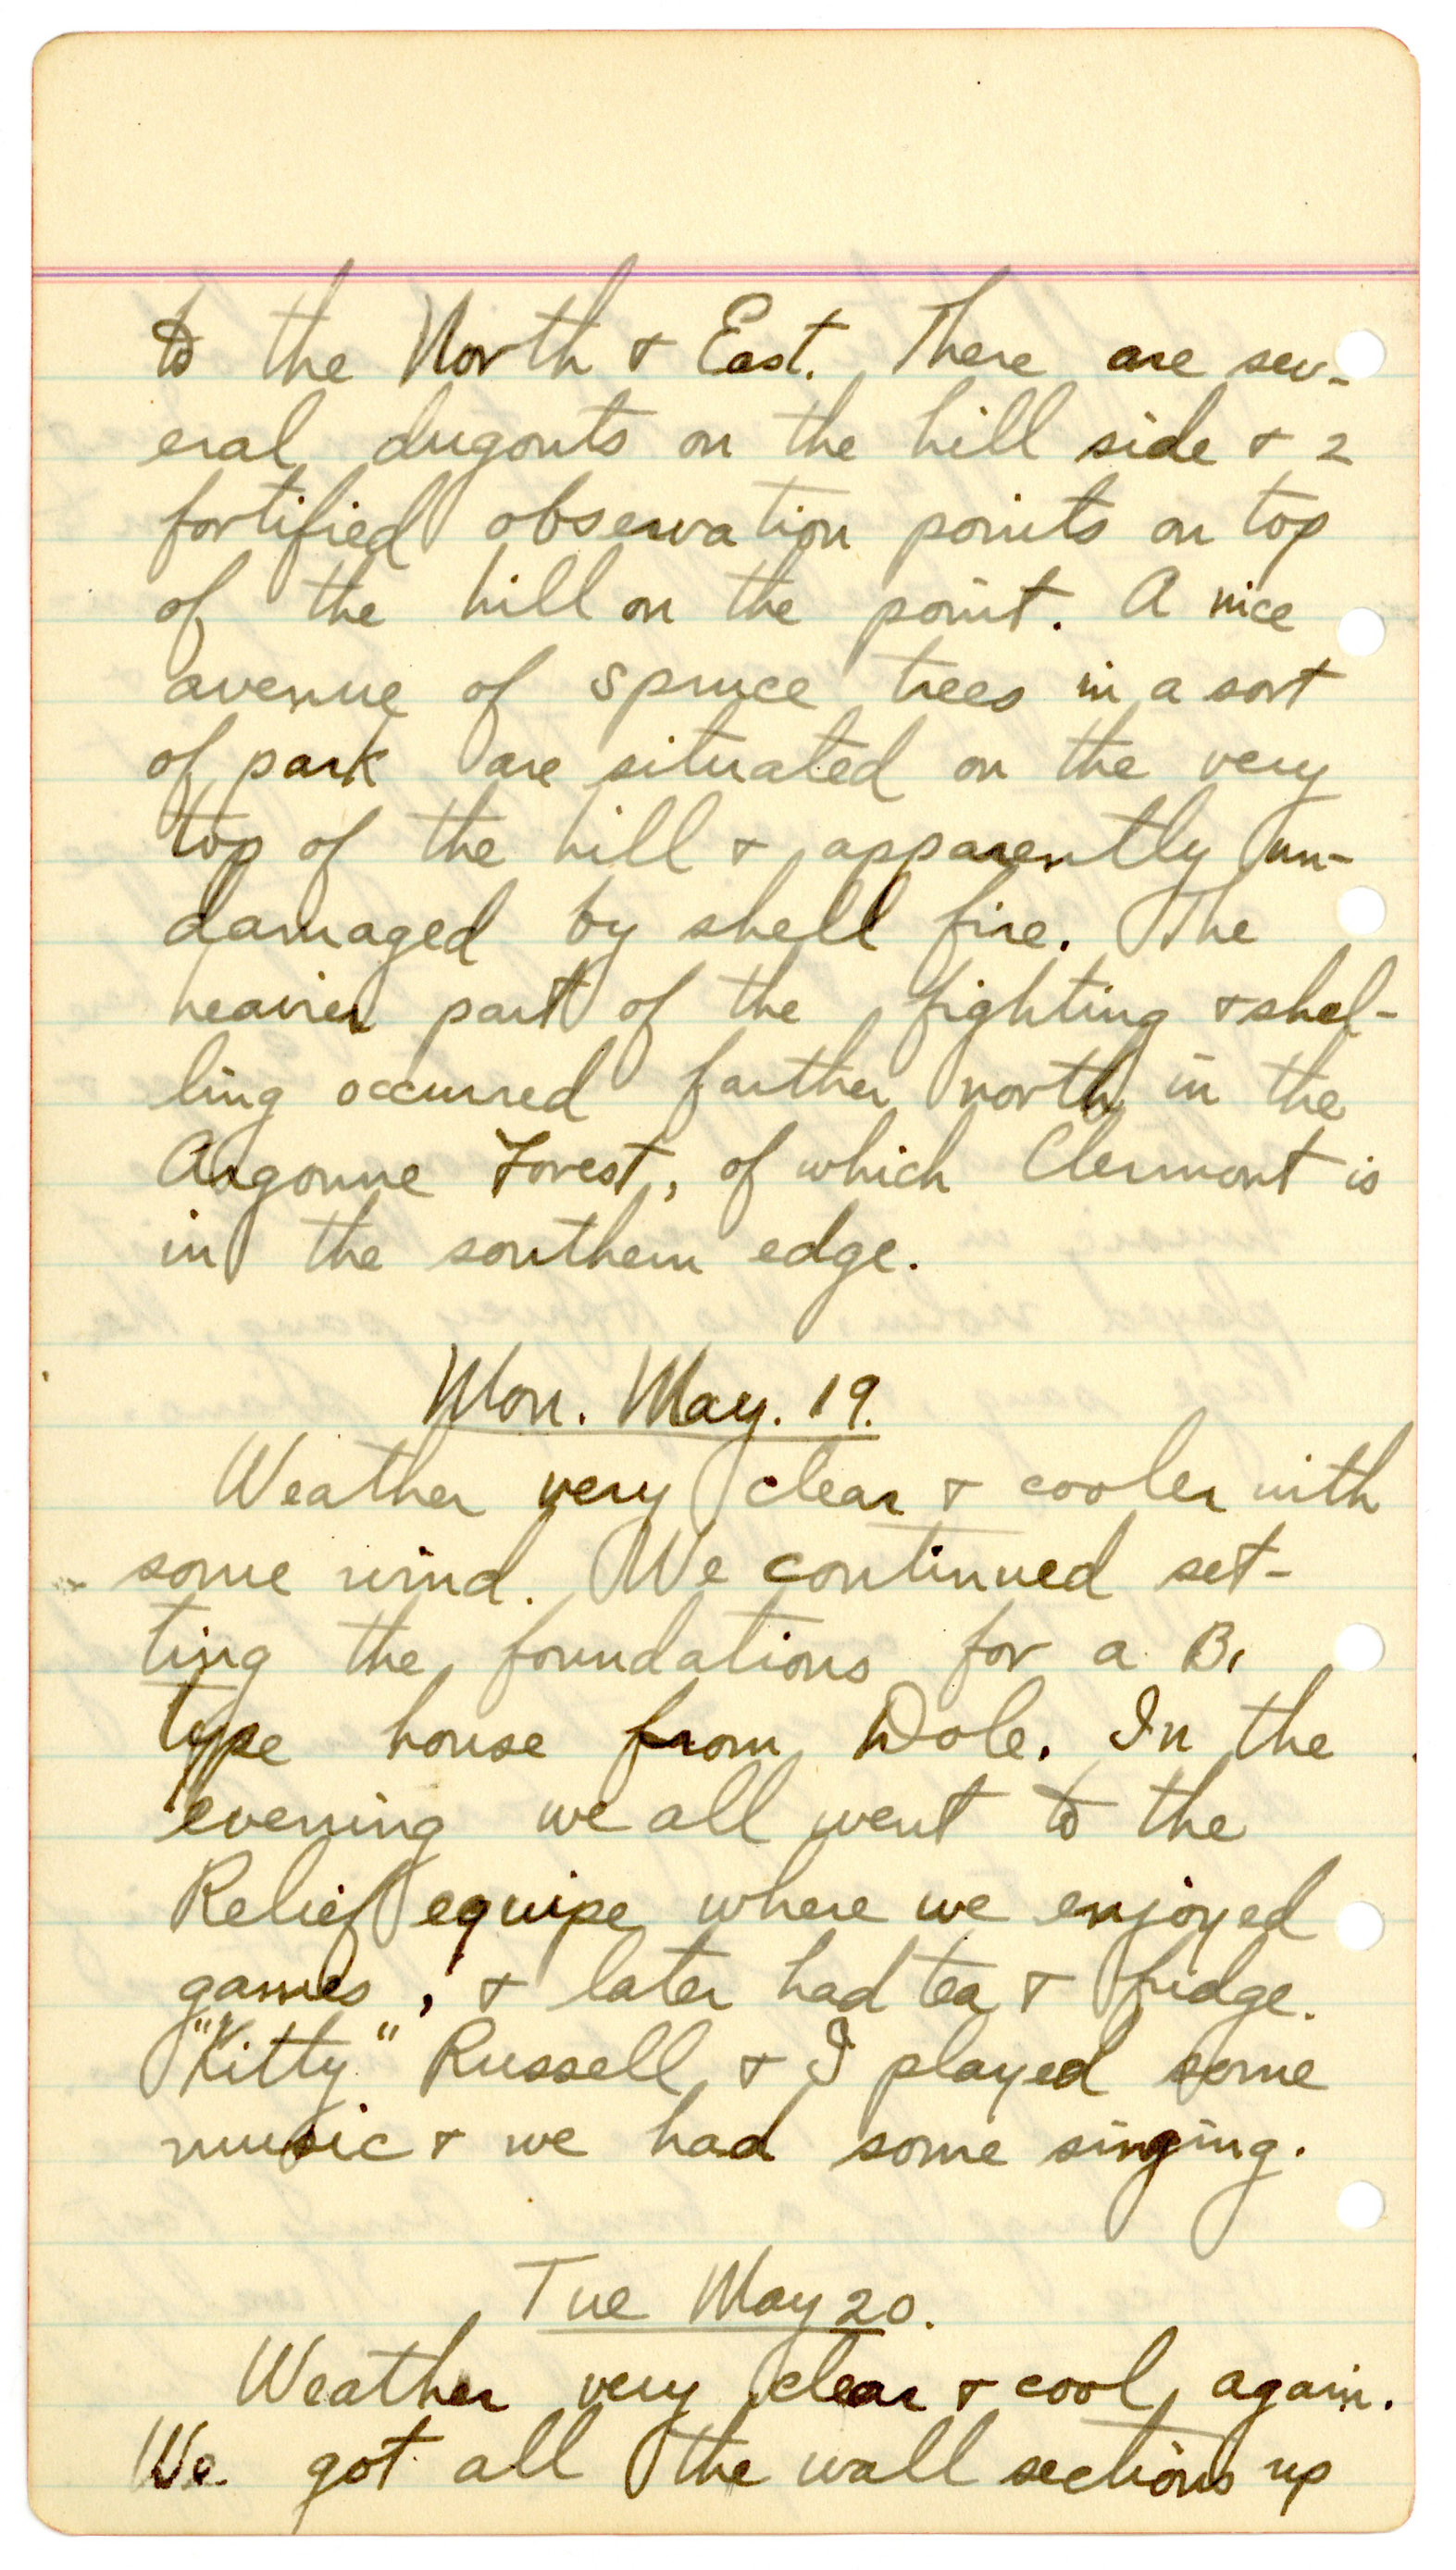 to the North & East. There are sev-
eral dugouts on the hill side & 2
fortified observation points on top
of the hill on the point. A nice
avenue of spruce trees in a sort
of park are situated on the very
top of the hill & apparently un-
damaged by shell fire. The
heavier part of the fighting & shel-
ling occurred farther north in the
Argonne Forest, of which Clermont is
in the southern edge.
Mon. May. 19.
Weather very clear & cooler with
some wind. We continued set-
ting the foundations for a B1
type house from Dole. In the
evening we all went to the
Relief equipe where we enjoyed
games, & later had tea & fudge.
"Kitty" Russell & I played some
music & we had some singing.
Tue May 20.
Weather very clear & cool again.
We got all the wall sections up